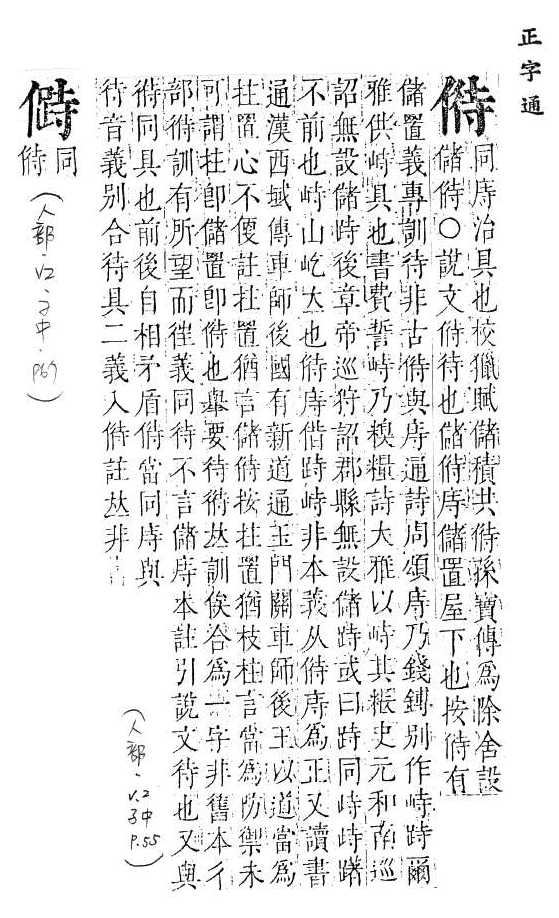 正字通
偫
同庤治具也校獵賦儲積共偫孫寶傳爲除舍設
儲偫○說文偫待也儲偫庤儲置屋下也按偫有
儲置義專訓待非古偫與庤通詩周頌庤乃錢鎛別作峙跱爾
雅供峙具也書費誓峙乃糗糧詩大雅以峙其粻史元和南巡
詔無設儲跱後章帝巡狩詔郡縣無設儲跱或曰跱同峙峙躇
不前也峙山屹立也偫庤偕跱峙非本義从偫庤爲正又讀書
通漢西域傳車師後國有新道通玉門關車師後王以道當爲
拄置心不便註拄置猶言儲偫按拄置猶枝柱言當爲防禦未
可謂拄卽儲置卽偫也舉要待偫𠀤訓俟合爲一字非舊本彳
部待訓有所望而往義同待不言儲庤本註引說文待也又與
偫同具也前後自相矛盾偫當同庤與
待音義别合待具二義入偫註𠀤非
(人部·v.2子中P.55)
㒾
同
偫
(人部·v.2·子中·P67)